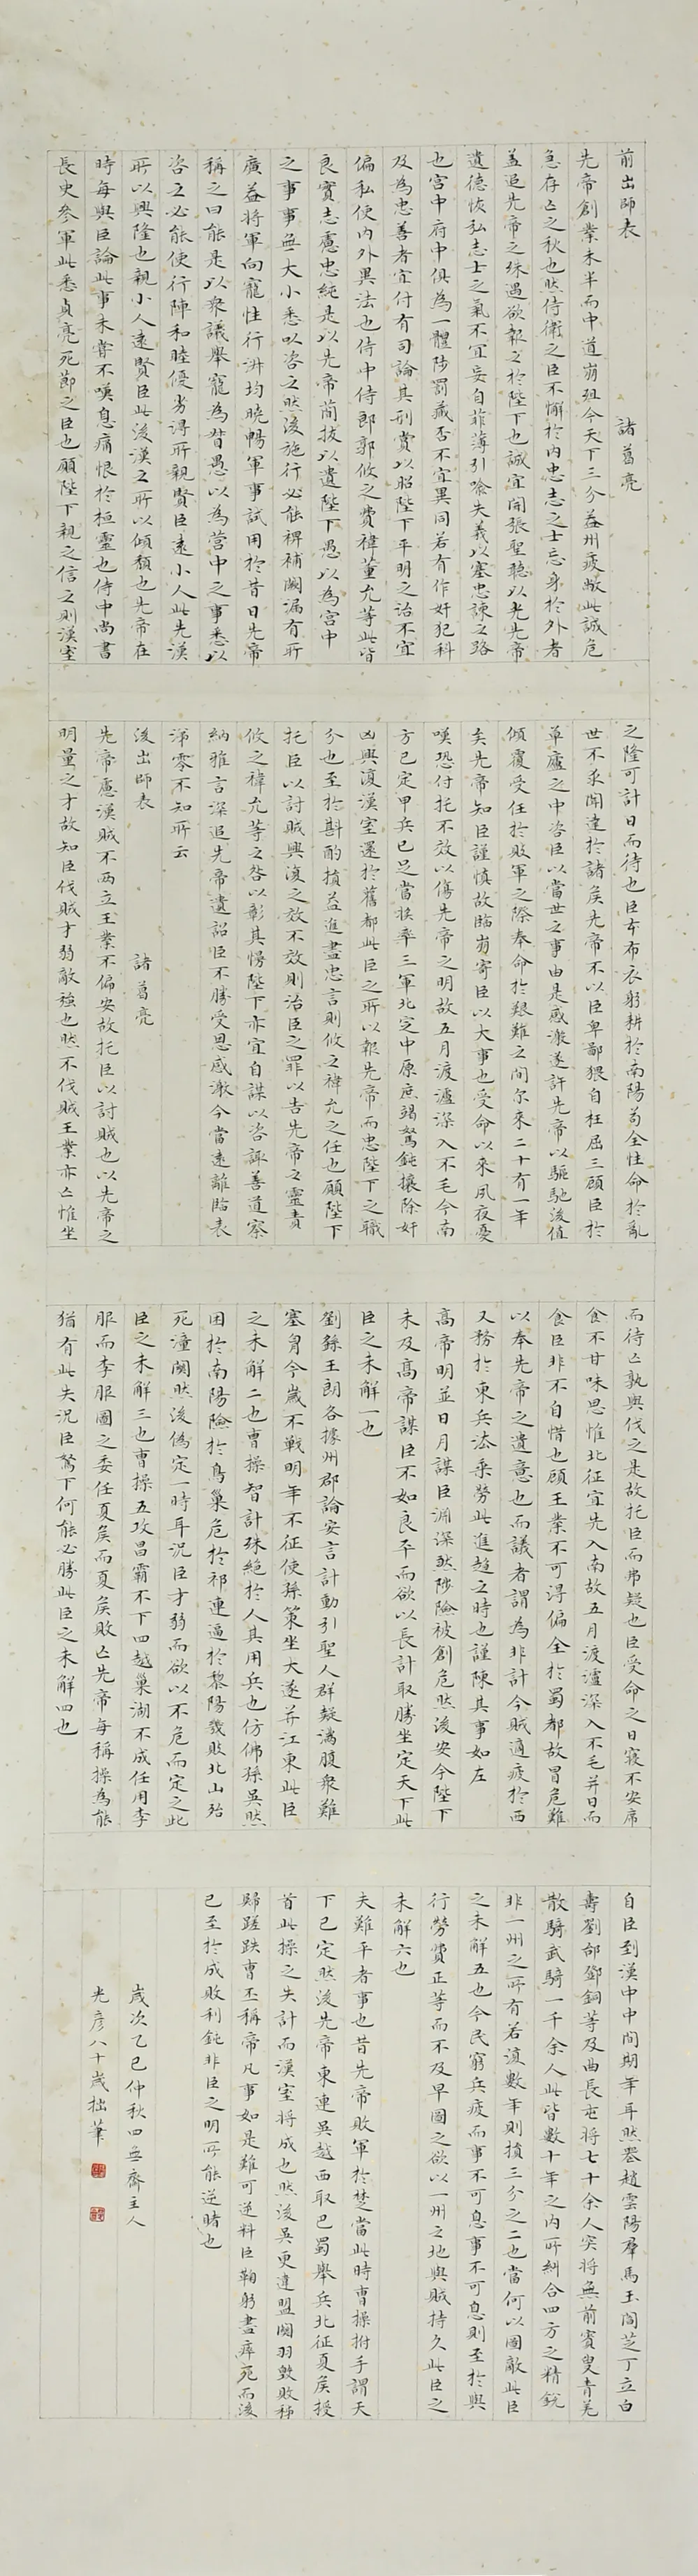 前出師表 諸葛亮
先帝創業未半而中道崩殂今天下三分益州疲敝此誠危
急存亡之秋也然侍衛之臣不懈於內忠志之士忘身於外者
蓋追先帝之殊遇欲報之於陛下也誠宜開張聖聽以光先帝
遺德恢弘志士之氣不宜妄自菲薄引喻失義以塞忠諫之路
也宮中府中俱為一體陟罰臧否不宜異同若有作奸犯科
及為忠善者宜付有司論其刑賞以昭陛下平明之治不宜
偏私使內外異法也侍中侍郎郭攸之費禕董允等此皆
良實志慮忠純是以先帝簡拔以遺陛下愚以為宮中
之事事無大小悉以咨之然後施行必能裨補闕漏有所
廣益將軍向寵性行淑均曉暢軍事試用於昔日先帝
稱之曰能是以眾議舉寵為督愚以為營中之事悉以
咨之必能使行陣和睦優劣得所親賢臣遠小人此先漢
所以興隆也親小人遠賢臣此後漢之所以傾頹也先帝在
時每與臣論此事未嘗不嘆息痛恨於桓靈也侍中尚書
長史參軍此悉貞亮死節之臣也願陛下親之信之則漢室
之隆可計日而待也臣本布衣躬耕於南陽苟全性命於亂
世不求聞達於諸侯先帝不以臣卑鄙猥自枉屈三顧臣於
草廬之中咨臣以當世之事由是感激遂許先帝以驅馳後值
傾覆受任於敗軍之際奉命於艱難之間尔來二十有一年
矣先帝知臣謹慎故臨崩寄臣以大事也受命以來夙夜憂
嘆恐付托不效以傷先帝之明故五月渡瀘深入不毛今南
方已定甲兵已足當獎率三軍北定中原庶竭駑鈍攘除奸
凶興復漢室還於舊都此臣之所以報先帝而忠陛下之職
分也至於斟酌損益進盡忠言則攸之禕允之任也願陛下
托臣以討賊興復之效不效則治臣之罪以告先帝之靈責
攸之禕允等之咎以彰其慢陛下亦宜自謀以咨諏善道察
納雅言深追先帝遺詔臣不勝受恩感激今當遠離臨表
涕零不知所云
後出師表 諸葛亮
先帝慮漢賊不兩立王業不偏安故托臣以討賊也以先帝之
明量之才故知臣伐賊才弱敵強也然不伐賊王業亦亡惟坐
而待亡孰與伐之是故托臣而弗疑也臣受命之日寢不安席
食不甘味思惟北征宜先入南故五月渡瀘深入不毛并日而
食臣非不自惜也顧王業不可得偏全於蜀都故冒危難
以奉先帝之遺意也而議者謂為非計今賊適疲於西
又務於東兵法乘勞此進趨之時也謹陳其事如左
高帝明並日月謀臣淵深然陟險被創危然後安今陛下
未及高帝謀臣不如良平而欲以長計取勝坐定天下此
臣之未解一也
劉繇王朗各據州郡論安言計動引聖人群疑滿腹眾難
塞胸今歲不戰明年不征使孫策坐大遂并江東此臣
之未解二也曹操智計殊絕於人其用兵也仿佛孫吳然
困於南陽險於烏巢危於祁連逼於黎陽幾敗北山殆
死潼關然後偽定一時耳況臣才弱而欲以不危而定之此
臣之未解三也曹操五攻昌霸不下四越巢湖不成任用李
服而李服圖之委任夏侯而夏侯敗亡先帝每稱操為能
猶有此失況臣駑下何能必勝此臣之未解四也
自臣到漢中中間期年耳然喪趙雲陽群馬玉閻芝丁立白
壽劉郃鄧銅等及曲長屯將七十余人突將無前賨叟青羌
散騎武騎一千余人此皆數十年之內所糾合四方之精銳
非一州之所有若復數年則損三分之二也當何以圖敵此臣
之未解五也今民窮兵疲而事不可息事不可息則至於與
行勞費正等而不及早圖之欲以一州之地與賊持久此臣之
未解六也
夫難平者事也昔先帝敗軍於楚當此時曹操拊手謂天
下已定然後先帝東連吳越西取巴蜀舉兵北征夏侯授
首此操之失計而漢室將成也然後吳更違盟關羽毀敗秭
歸蹉跌曹丕稱帝凡事如是難可逆料臣鞠躬盡瘁死而後
已至於成敗利鈍非臣之明所能逆睹也
歲次乙巳仲秋四無齋主人
光彥八十歲拙筆